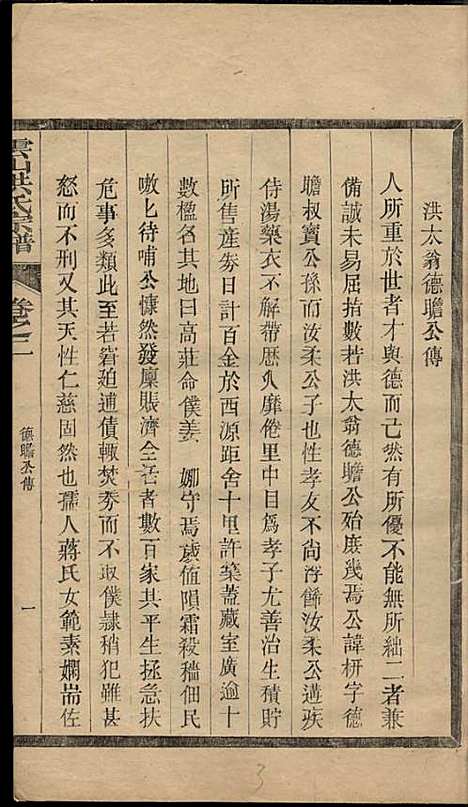 洪太翁德瞻公傳
人所重於世者才與德而已然有所優不能無所絀二者兼
備誠未易屈指數若洪太翁德瞻公殆庶幾焉公諱枅字德
瞻叔寶公孫而汝柔公子也性孝友不尚浮餙汝柔公遘疾
侍湯藥衣不解帶歷久靡倦里中目為孝子尤善治生積貯
所售產券日計百金於西源距舍十里許築蓋藏室廣逾十
數楹名其地曰高莊命僕姜 娜守焉歲值隕霜殺穡佃民
嗷匕待哺公慷然發廩賑濟全活者數百家其平生拯急扶
危事多類此至若窘廹逋債輒焚券而不取僕隷稍犯雖甚
怒而不刑又其天性仁慈固然也孺人蔣氏女範素嫻耑佐
雲山洪氏宗譜
卷之二
德瞻公傳
一
3